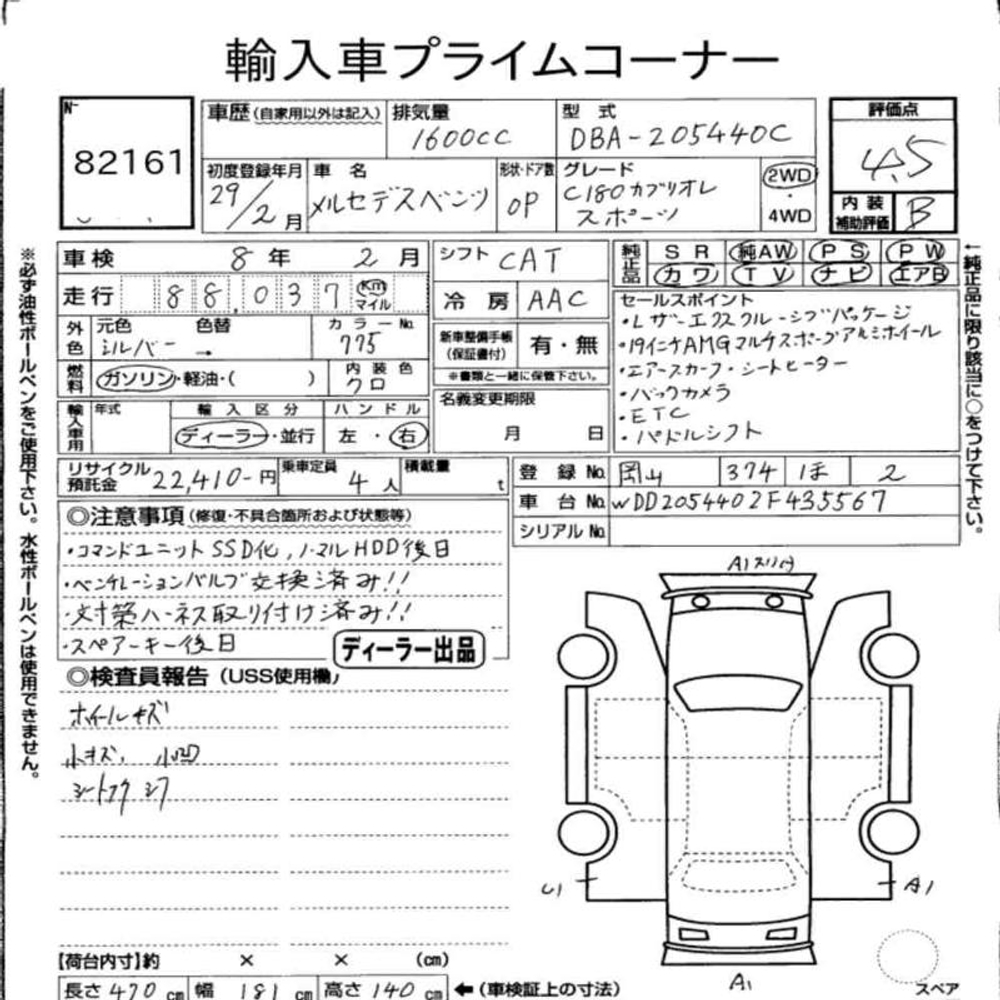 輸入車プライムコーナー
No
82161
車歴 (自家用以外は記入)
排気量
1600CC
型 式
DBA-205440C
評価点
4.5
初度登録年月
29/2月
車 名
メルセデスベンツ
形状・ドア数
OP
グレード
C180カブリオレ
スポーツ
2WD
・
4WD
内 装
補助評価
B
車検 8年 2月
走行 88,037 Km マイル
外色
元色 色替
シルバー →
カラーNo.
775
燃料
ガソリン・軽油・( )
内装色
クロ
輸入車用
年式
輸入区分
ディーラー・並行
ハンドル
左・右
シフト CAT
冷房 AAC
新車整備手帳
(保証書付)
有・無
※書類と一緒に保管下さい。
名義変更期限
月 日
純正品
SR 純AW PS PW
カワ TV ナビ エアB
セールスポイント
・レザーエクスクルーシブパッケージ
・19インチAMGマルチスポークアルミホイール
・エアースカーフ・シートヒーター
・バックカメラ
・ETC
・パドルシフト
リサイクル
預託金
22,410-円
乗車定員
4人
積載量
t
登録No. 岡山 374 ほ 2
車台No. WDD2054402F435567
シリアルNo.
◎注意事項 (修復・不具合箇所および状態等)
・コマンドユニットSSD化,ノーマルHDD後日
・ベンチレーションバルブ交換済み!!
・対策ハーネス取り付け済み!!
・スペアーキー後日
ディーラー出品
◎検査員報告 (USS使用欄)
ホイールキズ
小キズ、小凹
シートスレ シワ
A1
U1
A1
A1
スペア
【荷台内寸】約 × × (cm)
長さ 470 cm 幅 181 cm 高さ 140 cm
← (車検証上の寸法)
※必ず油性ボールペンをご使用下さい。水性ボールペンは使用できません。
←純正品に限り該当に○をつけて下さい。